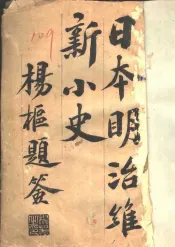 日本明治維
新小史
楊樞題簽
109